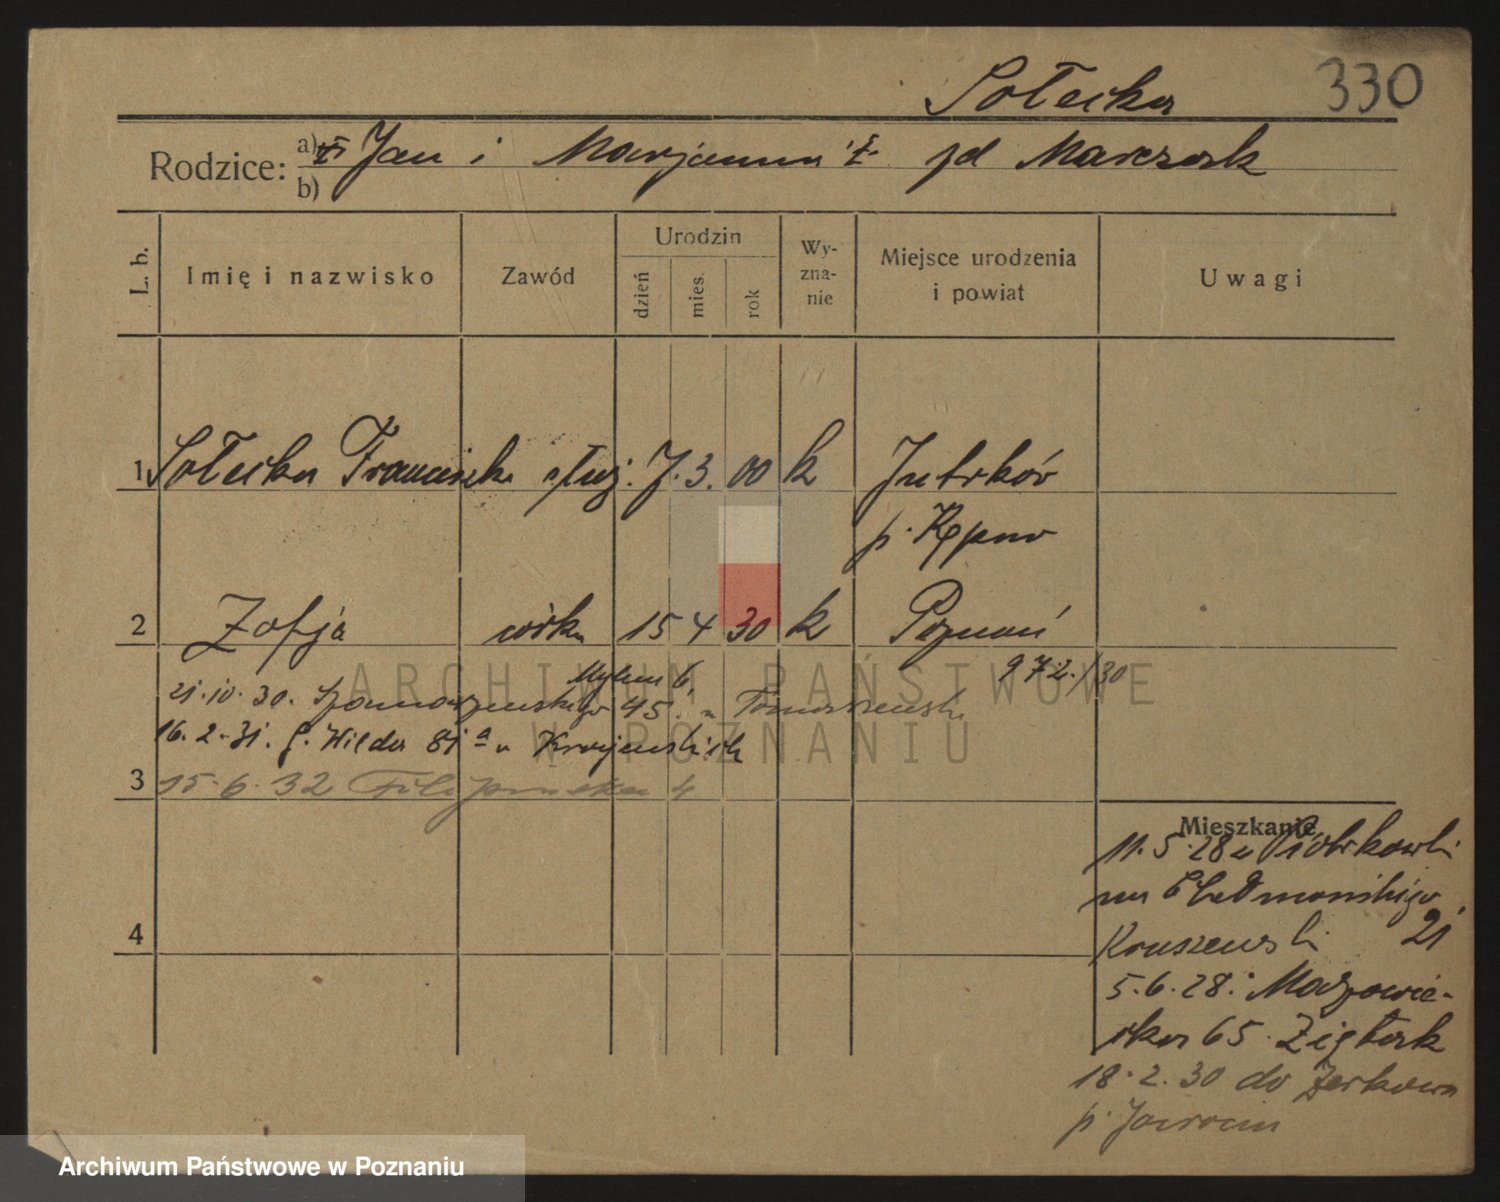 Sołecka 330
Rodzice: a) Jan i Marjanna zd Marczak
b)
L. b.
Imię i nazwisko
Zawód
Urodzin
dzień
mies.
rok
Wy-
zna-
nie
Miejsce urodzenia
i powiat
Uwagi
1 Sołecka Francisek służ. 7. 3. 00 k Jutrków
p. Kępno
2 Zofja córka 15 4 30 k Poznań
972/30
Mylna 6,
21.10.30. 45. u Tomaszewski
16.2.31. G. Wilda 81a u Krajewskich
3 15.6.32 4
Mieszkanie
11.5.28 u Piotrkowski
21
Kruszewski
5.6.28. Mazowie-
cka 65 Ziętak
18.2.30 do Żerkowa
p. Jarocin
4
ARCHIWUM PAŃSTWOWE
W POZNANIU
Archiwum Państwowe w Poznaniu